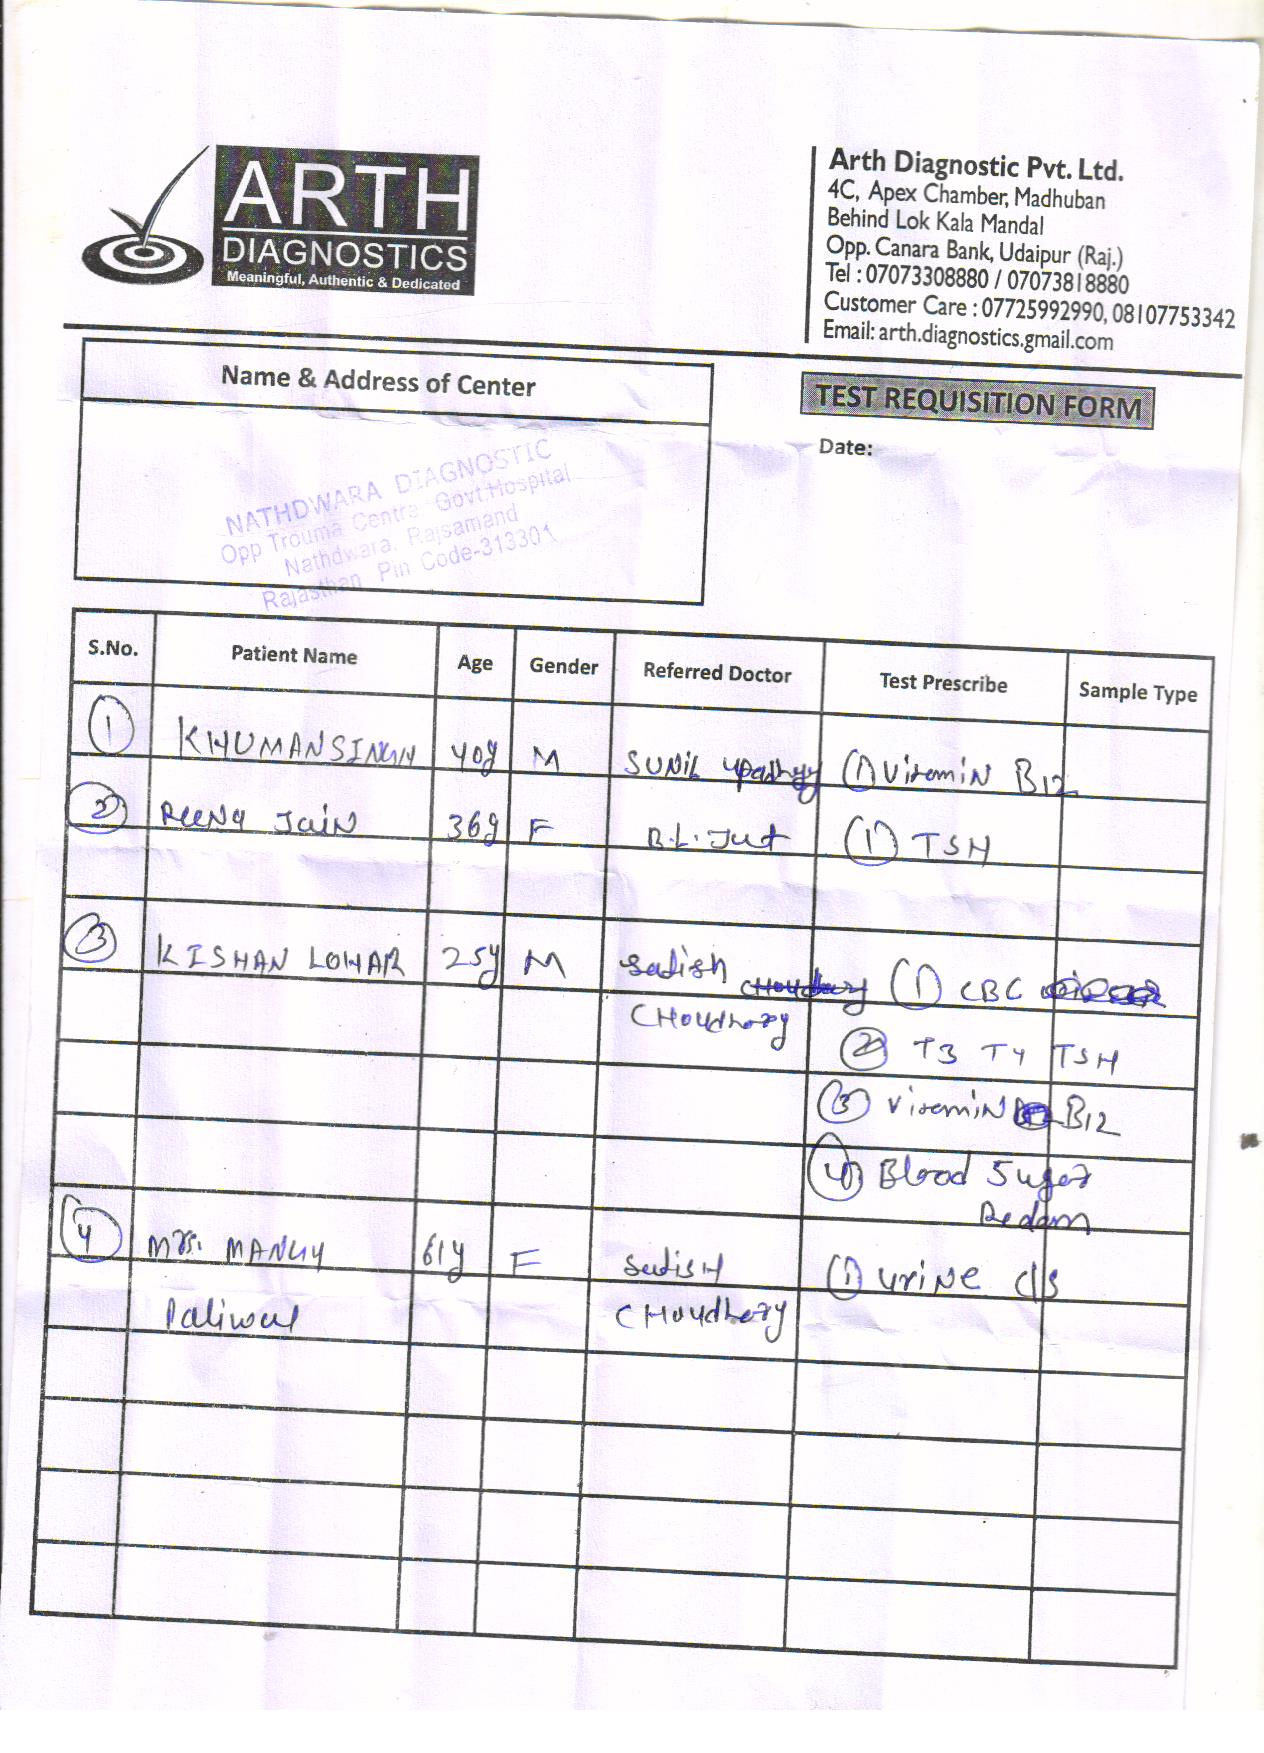 ARTH
DIAGNOSTICS
Meaningful, Authentic & Dedicated
Arth Diagnostic Pvt. Ltd.
4C, Apex Chamber, Madhuban
Behind Lok Kala Mandal
Opp. Canara Bank, Udaipur (Raj.)
Tel : 07073308880 / 07073818880
Customer Care : 07725992990, 08107753342
Email: arth.diagnostics.gmail.com
Name & Address of Center
TEST REQUISITION FORM
Date:
NATHDWARA DIAGNOSTIC
Opp Trouma Centre Govt.Hospital
Nathdwara. Rajsamand
Rajasthan Pin Code-313301
S.No. Patient Name Age Gender Referred Doctor Test Prescribe Sample Type
1 KHUMANSINGH 40y M SUNIL Upadhyay (1) Vitamin B12
2 Reena Jain 36y F B.L. Jat (1) TSH
3 KISHAN LOHAR 25y M Satish (1) CBC
CHoudhary (2) T3 T4 TSH
(3) VitamiN B12
(4) Blood Sugar
Redam
4 Mrs. 61y F SatisH (1) Urine C/S
Paliwal CHoudhary